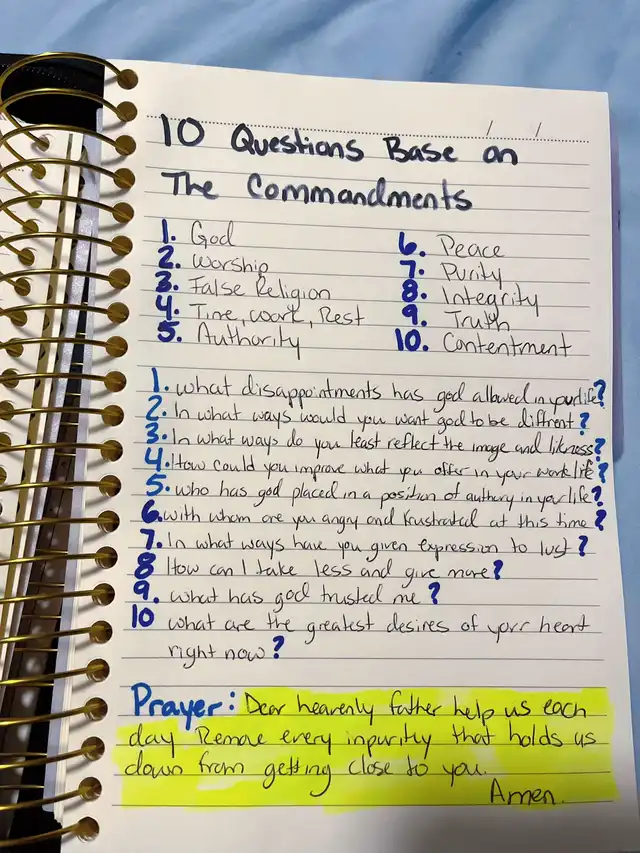 / /
10 Questions Base on
The Commandments
1. God
2. Worship
3. False Religion
4. Time, Work, Rest
5. Authority
6. Peace
7. Purity
8. Integrity
9. Truth
10. Contentment
1. what disappointments has god allowed in your life?
2. In what ways would you want god to be diffrent?
3. In what ways do you least reflect the image and likness?
4. How could you improve what you offer in your work life?
5. who has god placed in a position of authory in your life?
6. with whom are you angry and frustrated at this time?
7. In what ways have you given expression to lust?
8 How can I take less and give more?
9. what has god trusted me?
10 what are the greatest desires of your heart
right now?
Prayer: Dear heavenly father help us each
day. Remove every inpuritiy that holds us
down from getting close to you.
Amen.